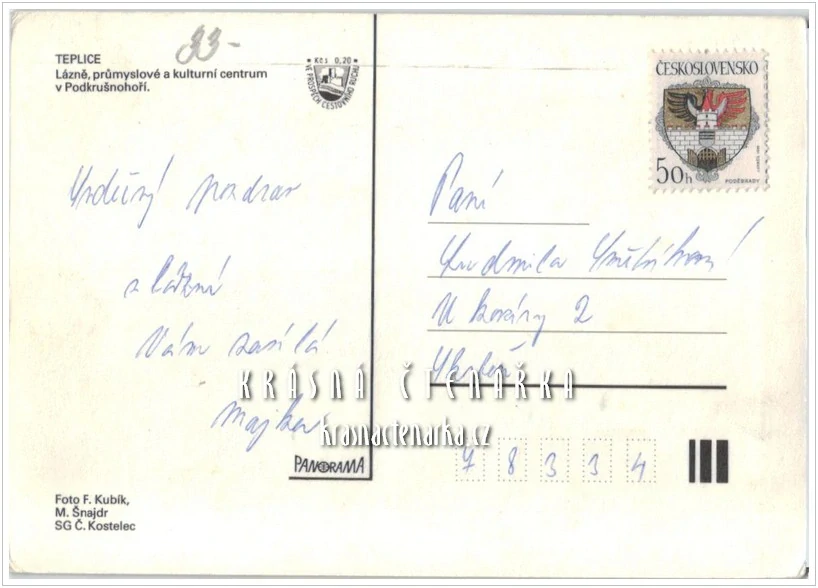 TEPLICE
Lázně, průmyslové a kulturní centrum
v Podkrušnohoří.
33-
Kčs 0,20
VE PROSPĚCH CESTOVNÍHO RUCHU
ČESKOSLOVENSKO
50h
PODĚBRADY
Srdečný pozdrav
z lázní
Vám zasílá
Majka
Paní
Ludmila
U kovárny 2
78334
KRÁSNÁ ČTENÁŘKA
krasnactenarka.cz
PANORAMA
Foto F. Kubík,
M. Šnajdr
SG Č. Kostelec